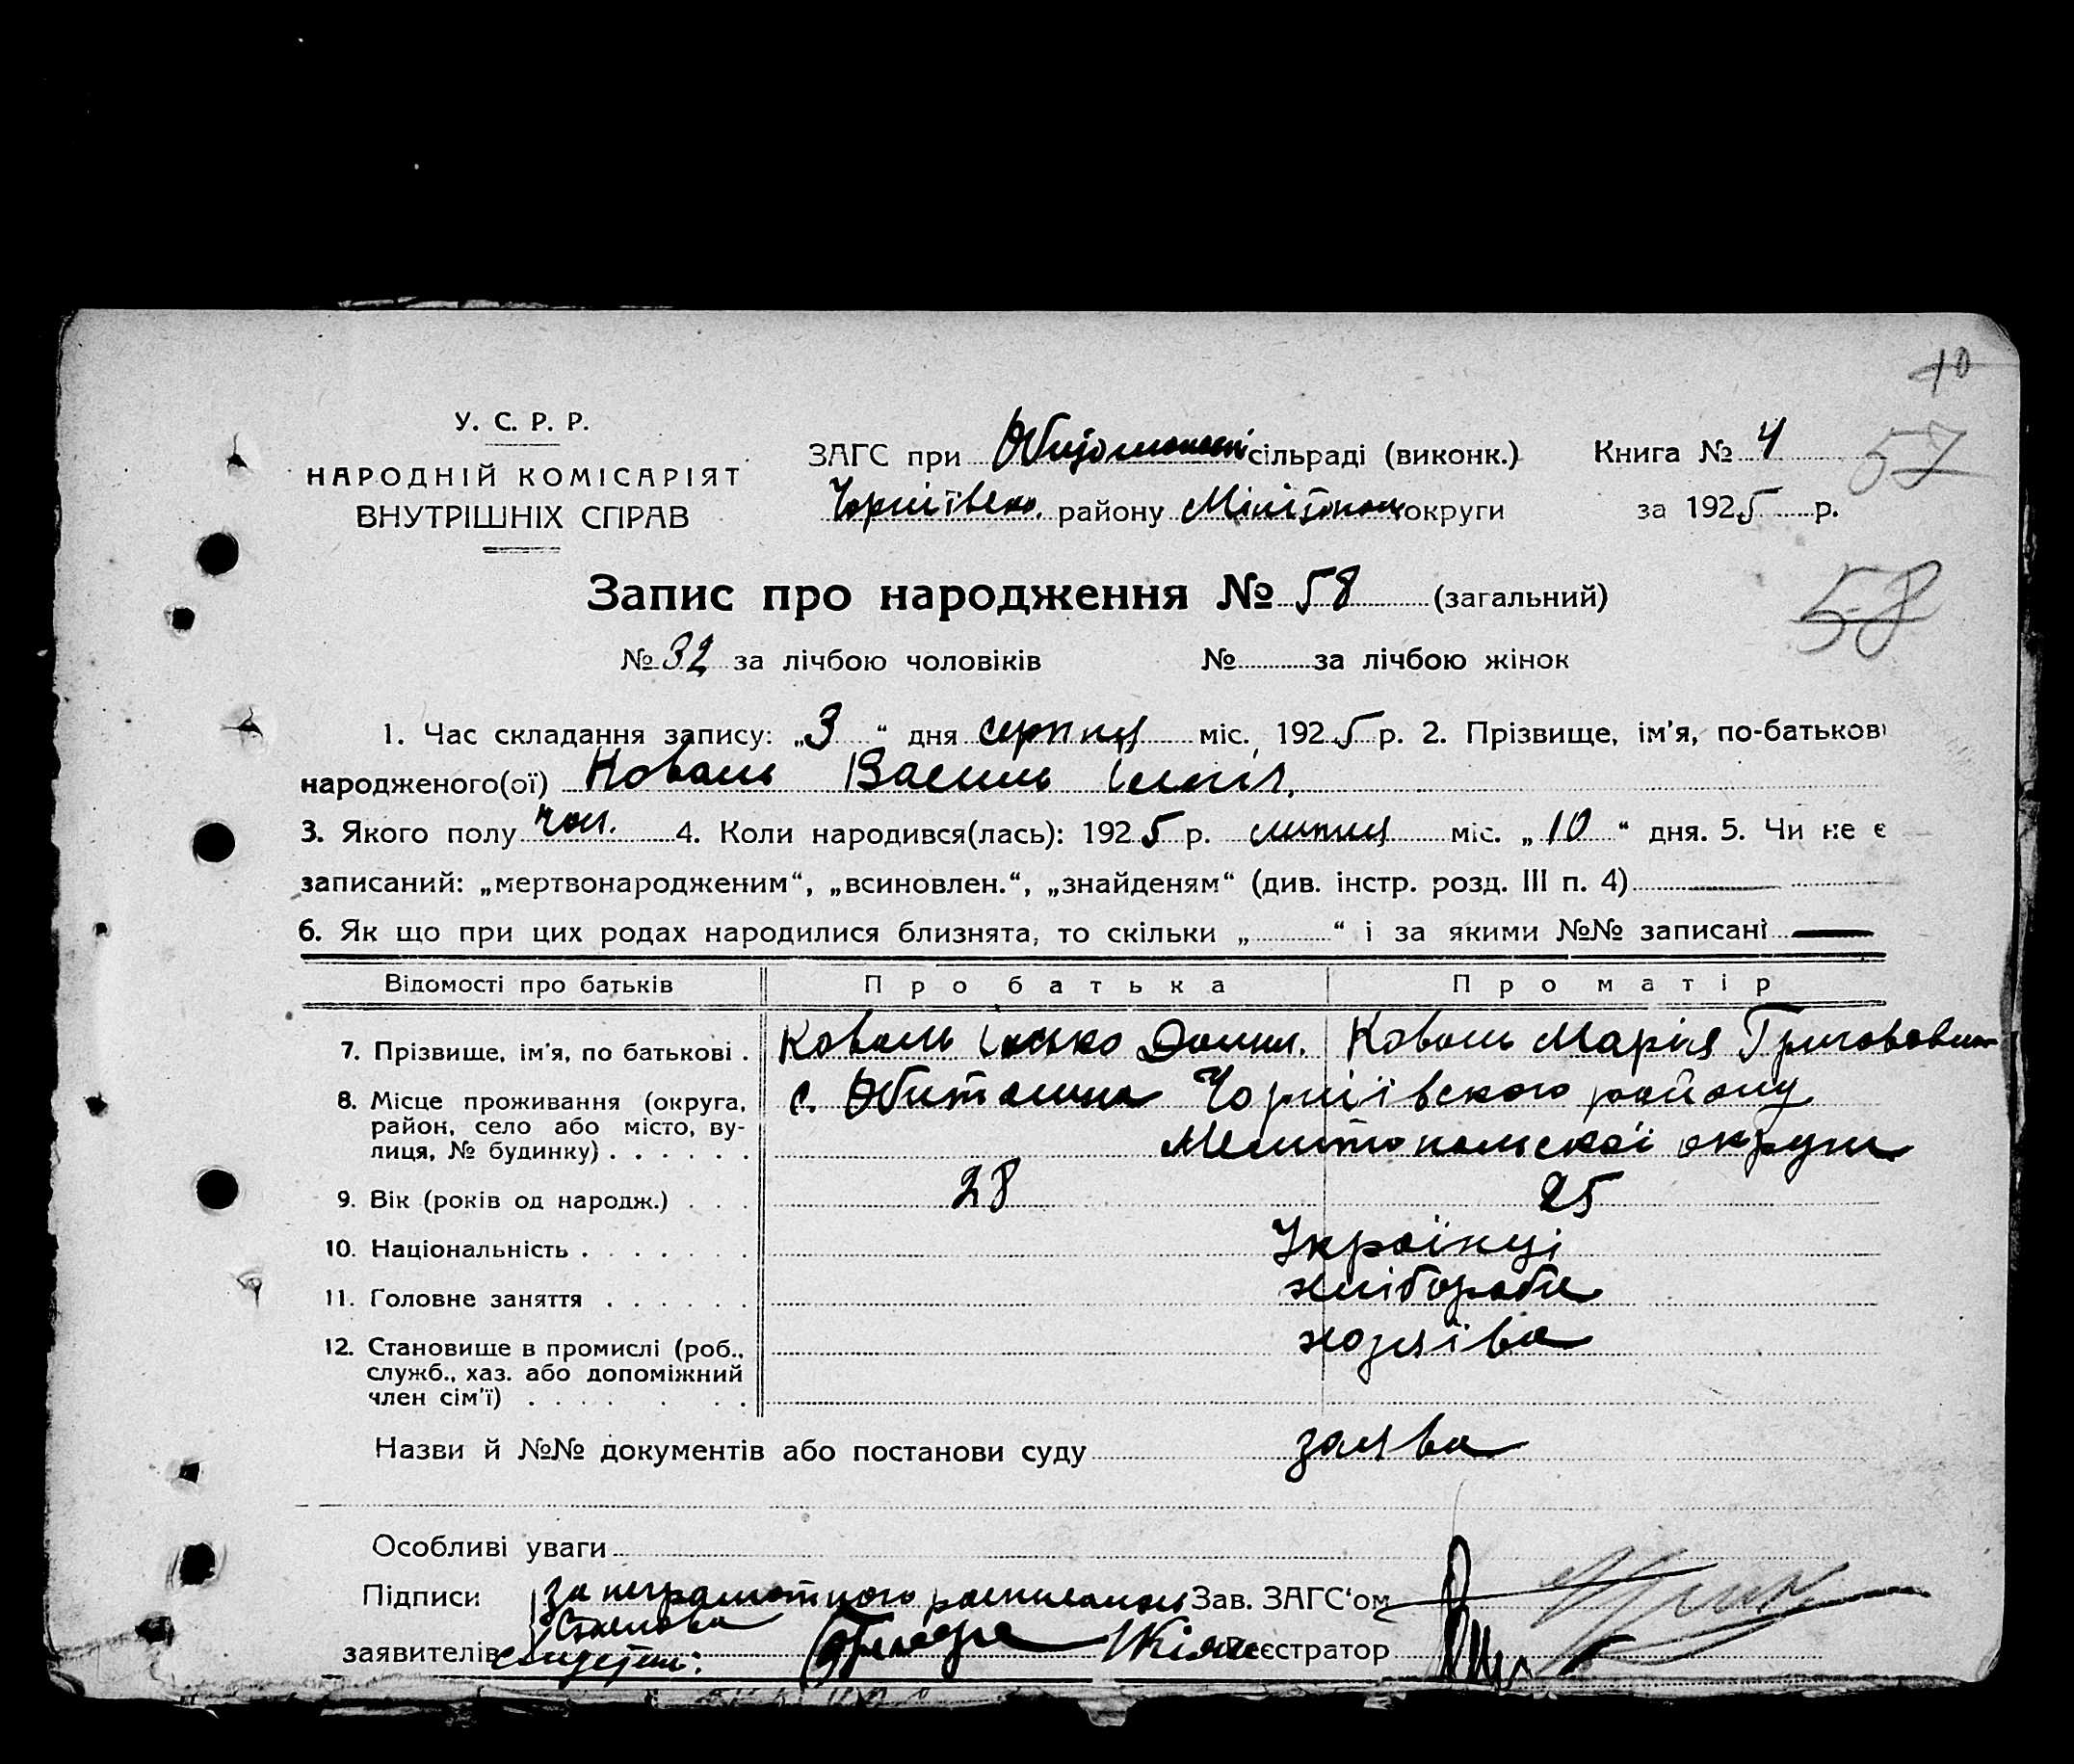 10
У. С. Р. Р.
НАРОДНІЙ КОМІСАРІЯТ
ВНУТРІШНІХ СПРАВ
ЗАГС при сільраді (виконк.) Книга № 4
57
району округи за 1925 р.
Запис про народження № 58 (загальний)
58
№ 32 за лічбою чоловіків № за лічбою жінок
1. Час складання запису: „3“ дня серпня міс. 1925 р. 2. Прізвище, ім'я, по-батькові
народженого(ої) Коваль Василь
3. Якого полу чол. 4. Коли народився(лась): 1925 р. липня міс. „10“ дня. 5. Чи не є
записаний: „мертвонародженим“, „всиновлен.“, „знайденям“ (див. інстр. розд. III п. 4)
6. Як що при цих родах народилися близнята, то скільки „ “ і за якими №№ записані —
Відомості про батьків Про батька Про матір
7. Прізвище, ім'я, по батькові . Коваль Коваль Марія
8. Місце проживання (округа, район, село або місто, вулиця, № будинку) . . . . . . с. Чорніївського району
Мелитопольскої округи
9. Вік (років од народж.) . . . 28 25
10. Національність . . . . . . . Українці
11. Головне заняття . . . . . . хлібороби
12. Становище в промислі (роб., служб., хаз. або допоміжний член сім'ї) . . . . . . . хозяіва
Назви й №№ документів або постанови суду заява
Особливі уваги
Підписи за неграмотного Зав. ЗАГС'ом
заявителів